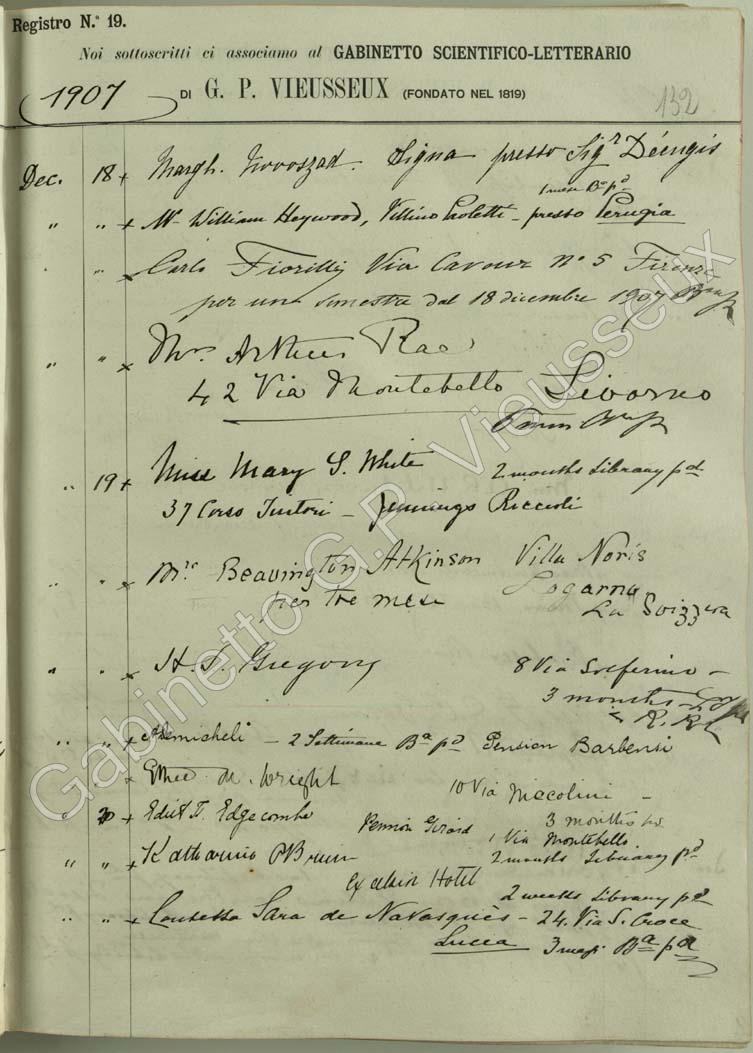 Registro N.° 19.
Noi sottoscritti ci associamo al GABINETTO SCIENTIFICO-LETTERARIO
1907
DI G. P. VIEUSSEUX (FONDATO NEL 1819)
132
Dec. 18 x Margh. Novoszad. Signa presso Sigr
1 mese Ba pd
" " x Mr William Heywood, Villino Paoletti - presso Perugia
" " x Carlo Fiorilli Via Cavour n° 5 Firenze
per un semestre dal 18 dicembre 1907
" " x Mrs Arthur Rae
42 Via Montebello Livorno
" 19 x Miss Mary S. White 2 months Library pd
37 Corso Tintori - Jennings Riccioli
" " x Beavington Atkinson Villa Noris
per tre mesi
La Svizzera
" " x H. S. Gregory 8 Via Solferino -
3 months
" " x Demicheli - 2 Settimane Ba pd Pension Barbensi
x M. Wright 10 Via Niccolini -
" 20 x Edith T. Edgecombe Pension Girard 3 months pd
1 Via Montebello
" " x Katharine 2 months Library pd
Excelsior Hotel
2 weeks Library pd
" " x Contessa Sara de Navasquès - 24. Via S. Croce
Lucca 3 mesi Ba pd
Gabinetto G.P. Vieusseux